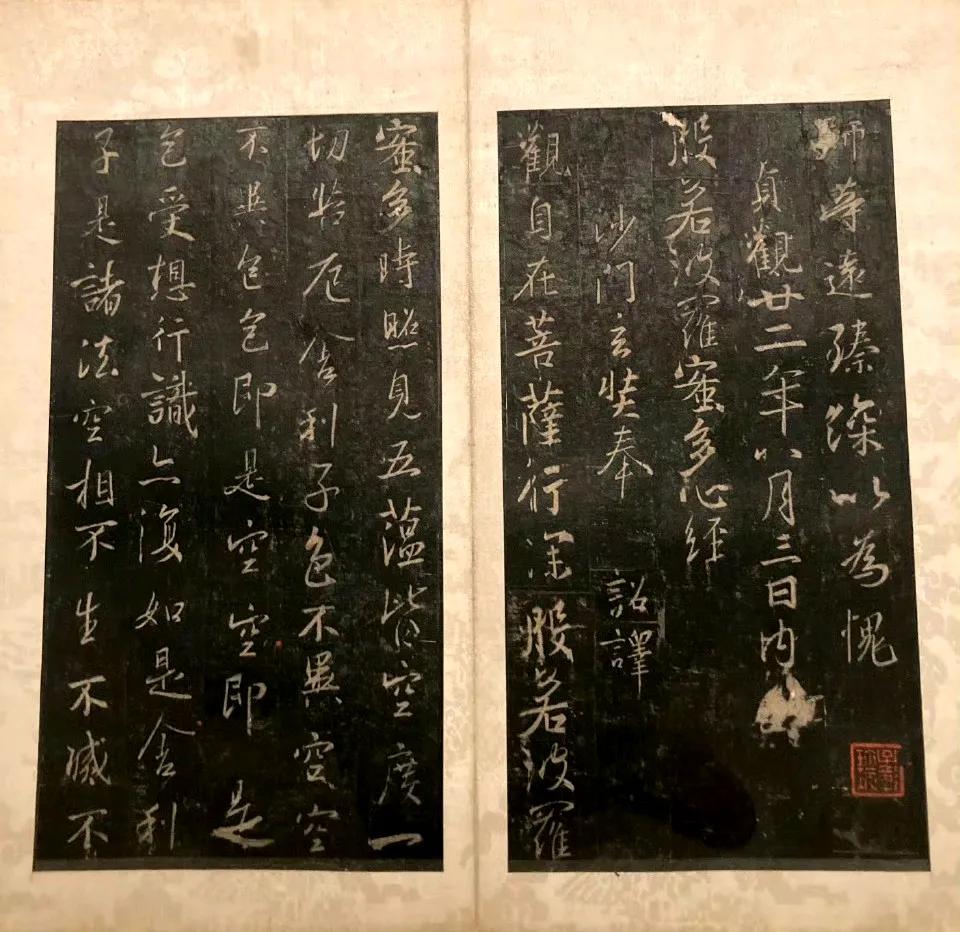 師等遠臻深以為愧
貞觀廿二年八月三日內
般若波羅蜜多心經
沙門玄奘奉 詔譯
觀自在菩薩行深般若波羅
蜜多時照見五蘊皆空度一
切苦厄舍利子色不異空空
不異色色即是空空即是
色受想行識亦復如是舍利
子是諸法空相不生不滅不